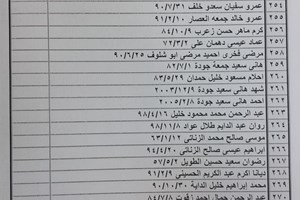 ٢٥٤ عمرو سفيان سعدو خلف ٩٠/٧/٣١
٢٥٥ عمرو خالد جمعه العصار ٩١/٢/١٠
٢٥٦ كرم ماهر حسن زعرب ٨٤/١٠/٩
٢٥٧ عماد عيسى دهمان على ٧٢/٣/٢
٢٥٨ مرضي فخري احميد مرضي ابو شلوف ٩٠/٦/٢٥
٢٥٩ هاني سعيد جمعة جودة ٨٢/٧/١
٢٦٠ احلام مسعود خليل حمدان ٨٣/٥/٢٩
٢٦١ شهد هاني سعيد جودة 2003/12/9
٢٦٢ احمد هاني سعيد جودة 2005/2/8
٢٦٣ عبد الرحمن محمد محمود خليل ٩٨/٤/١٦
٢٦٤ روان عبد الدايم طلال عواد ٩٨/١١/٨
٢٦٥ موسى صالح محمد الزناتي ٦٣/١/١
٢٦٦ ابراهيم عيسى صالح الزناتي ٩٤/٤/٢٠
٢٦٧ رضوان سعيد حسين الطويل ٥٧/٥/٢
٢٦٨ ديانا اكرم عبد الكريم الحسيني ٩١/٩/٢
٢٦٩ محمد ابراهيم خليل الداية ٩٠/١٠/٣٠
٢٧٠ عبد الرحمن جمال احمد ٨٤/٧/٨